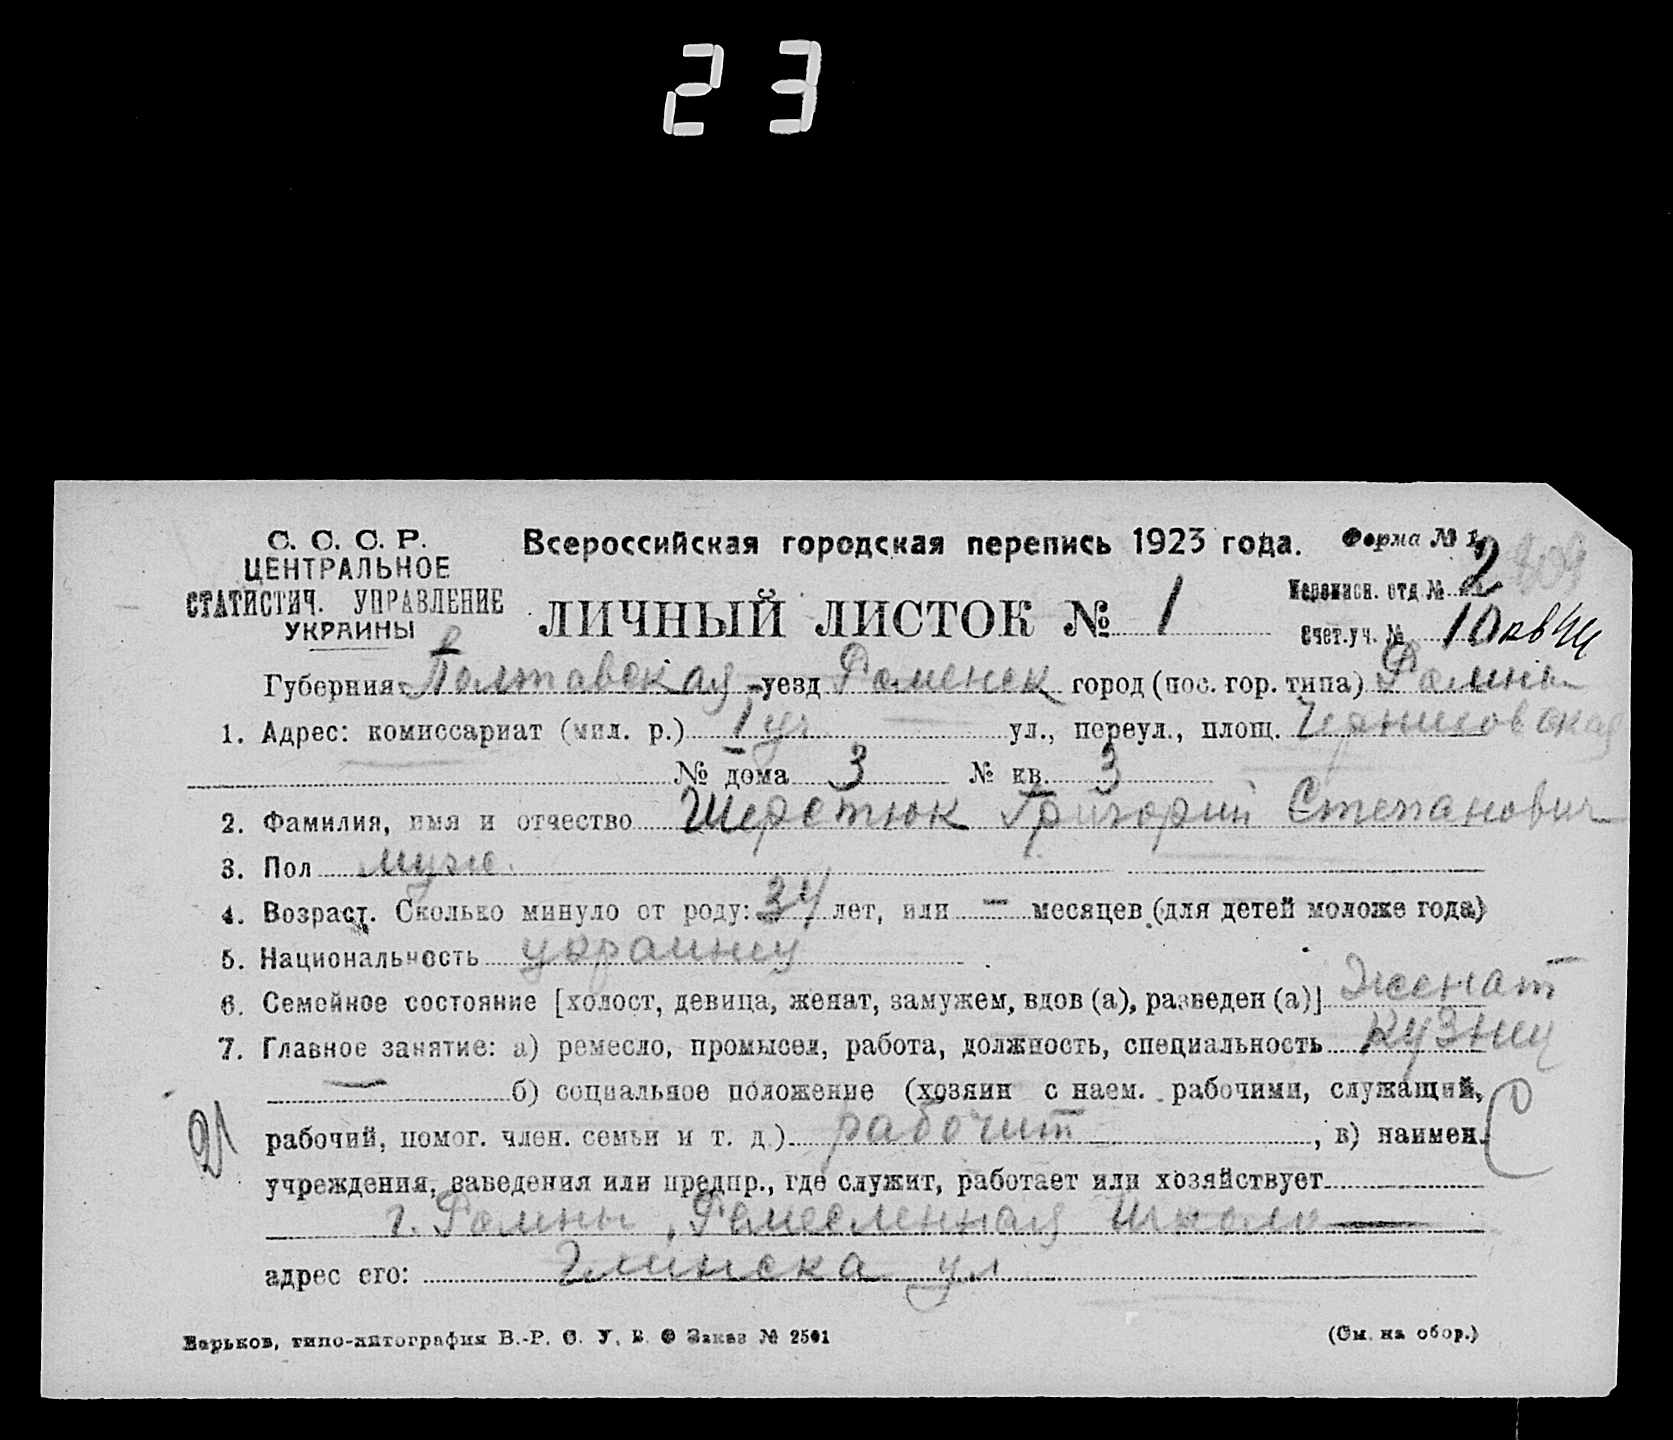 23
С. С. С. Р.
ЦЕНТРАЛЬНОЕ
СТАТИСТИЧ. УПРАВЛЕНИЕ
УКРАИНЫ
Всероссийская городская перепись 1923 года.
Форма № 1.
ЛИЧНЫЙ ЛИСТОК № 1
Переписн. отд. № 2
Счет. уч. № 10
Губерния: Полтавская уезд Роменск город (пос. гор. типа) Ромны
1. Адрес: комиссариат (мил. р.) 1 уч ул., переул., площ.
№ дома 3 № кв. 3
2. Фамилия, имя и отчество Шерстюк Григорий Степанович
3. Пол муж.
4. Возраст. Сколько минуло от роду: 34 лет, или — месяцев (для детей моложе года)
5. Национальность украинец
6. Семейное состояние [холост, девица, женат, замужем, вдов (а), разведен (а)] Женат
7. Главное занятие: а) ремесло, промысел, работа, должность, специальность кузнец
— б) социальное положение (хозяин с наем. рабочими, служащий,
рабочий, помог. член. семьи и т. д.) , в) наимен.
учреждения, заведения или предпр., где служит, работает или хозяйствует
г. Ромны, Ремесленная Школа
адрес его: Глинска ул
Харьков, типо-литография В.-Р. С. У. В. О Заказ № 2501
(См. на обор.)